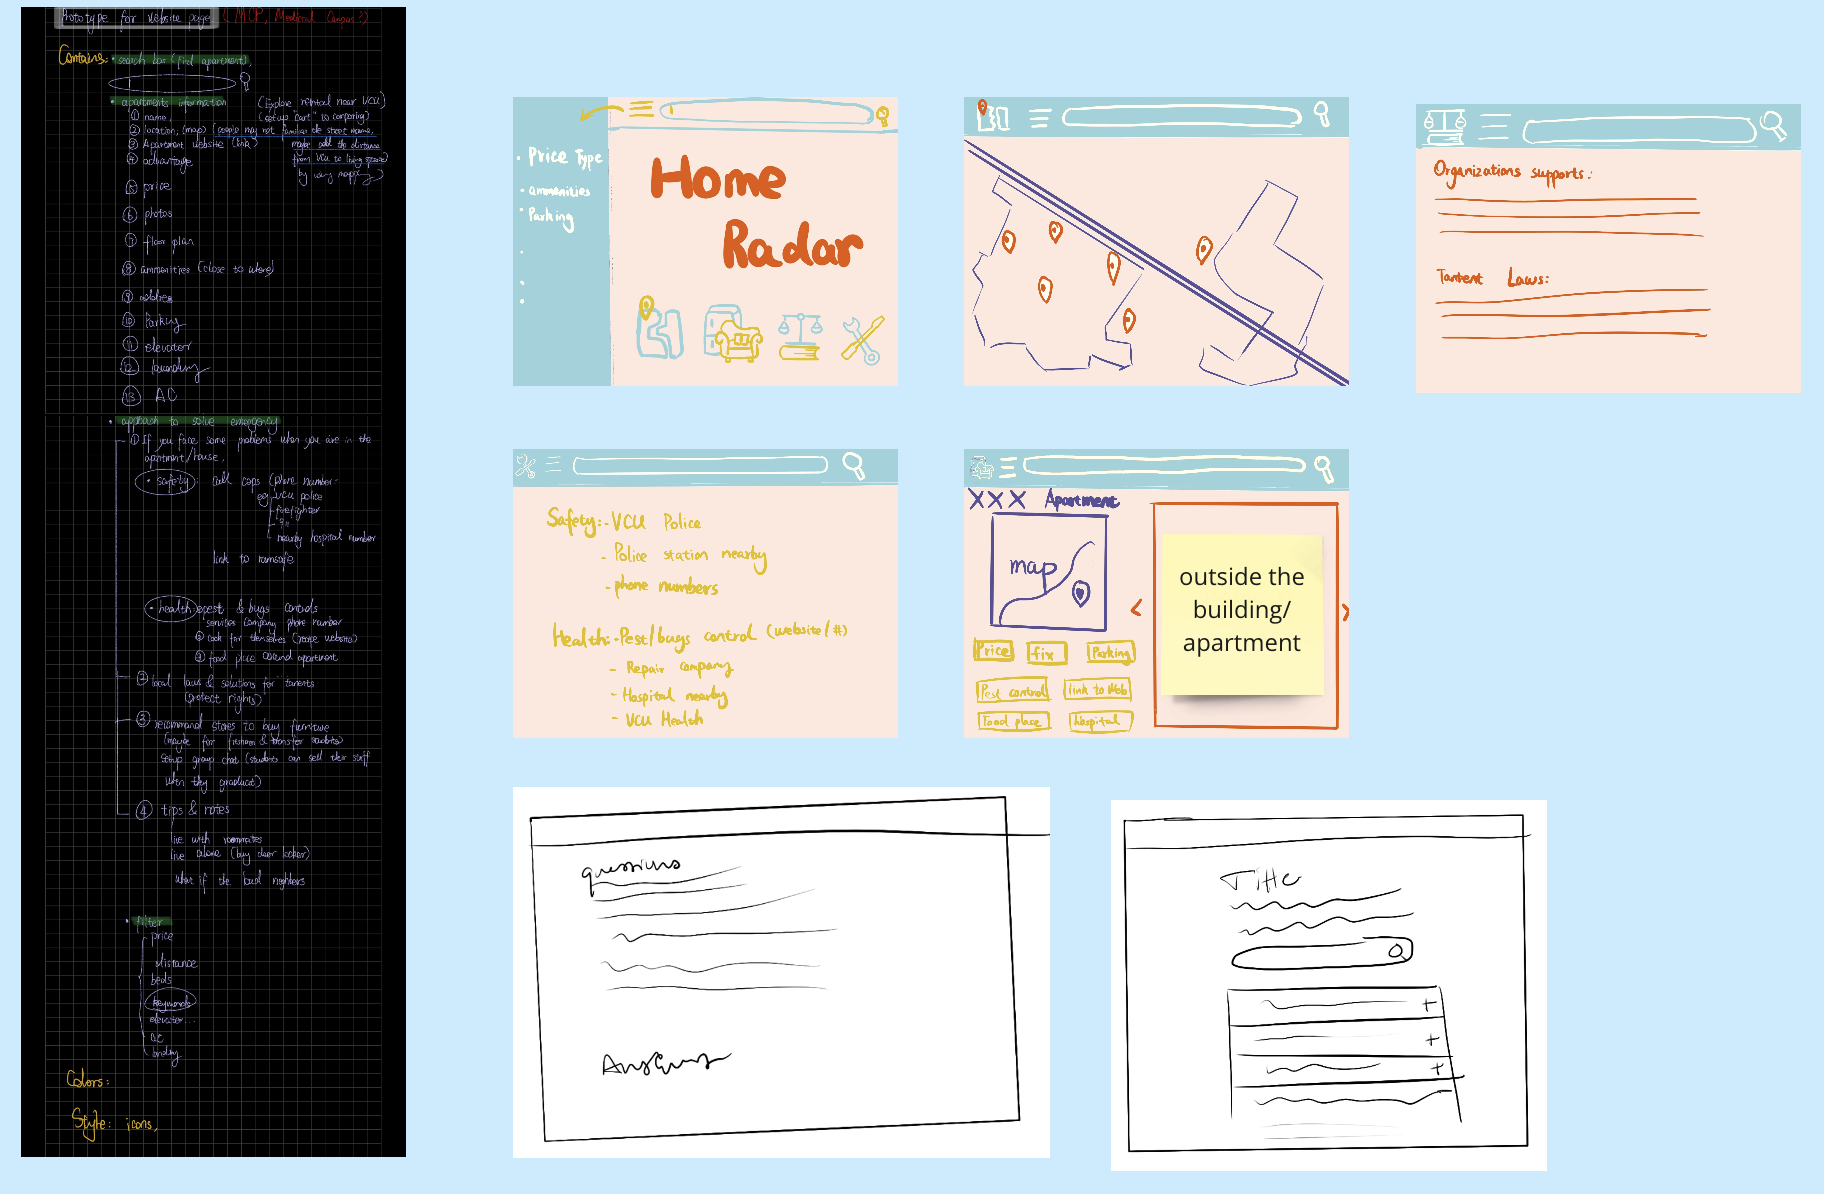 Prototype for website page (MCP, Medical Campus?)
Contains:
• search bar (find apartment),
• apartments information (Explore rental near VCU)
① name, (setup "cart" to comparing)
② location; (map) (people may not familiar the street name,
③ Apartment website (link) maybe add the distance
④ advantage from VCU to living space)
by using mapp
⑤ price
⑥ photos
⑦ floor plan
⑧ ammenities (close to where)
⑨ address
⑩ Parking
⑪ elevator
⑫
⑬ AC
• approach to solve emergency
① If you face some problems when you are in the
apartment/house,
• safety: call cops (phone number-
eg VCU police
firefighter
911
nearby hospital number
link to ramsafe
• health: pest & bugs controls
services company phone number
② look for themselves (recipe website)
③ food place around apartment
② local laws & solutions for tanents
(protect rights)
③ recommand stores to buy furniture
(maybe for freshman & transfer students)
setup group chat (students can sell their stuff
when they graduate)
④ tips & notes
live with roommates
live alone (buy door locker)
what if the bad neighbors
• filter
price
distance
beds
keywords
elevator...
AC
Colors:
Style: icons,
• Price Type
• ammenities
• Parking
Home
Radar
Organizations supports:
Tantent Laws:
Safety:- VCU Police
- Police station nearby
- phone numbers
Health:- Pest/bugs control (website/#)
- Repair company
- Hospital nearby
- VCU Health
XXX Apartment
map
Price fix Parking
Pest control link to Web
Food place hospital
outside the
building/
apartment
questions
Answers
Title